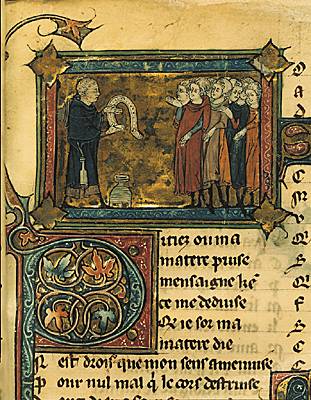 Pitiez ou ma
matere puise
mensaigne ke
ce me deduise
Qe ie sor ma
matere die
N est drois que mon sens amenuise
P our nul mal q le cors destruise